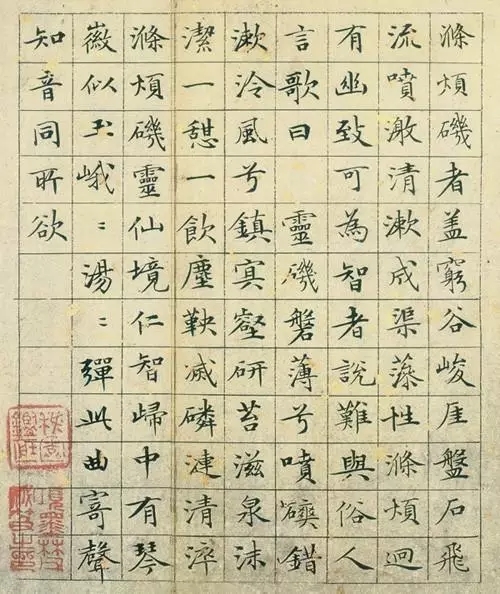 滌煩磯者盖窮谷峻厓盤石飛
流噴激清漱成渠藻性滌煩迴
有幽致可為智者說難與俗人
言歌曰 靈磯磐薄兮噴錯
漱泠風兮鎮冥壑研苔滋泉沫
潔一憇一飲塵鞅滅磷漣清淬
滌煩磯靈仙境仁智歸中有琴
徽似玉峨〻湯〻彈此曲寄聲
知音同所欲
項墨林父
秘笈之印